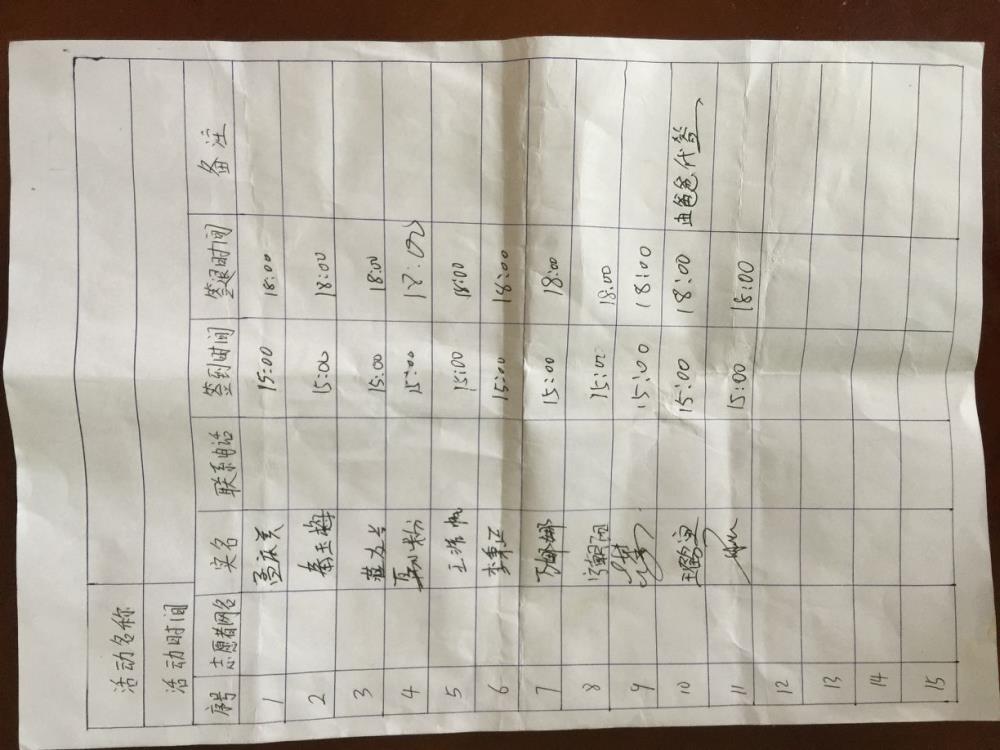 活动名称
活动时间
序号 志愿者网名 实名 联系电话 签到时间 签退时间 备注
1 15:00 18:00
2 秦玉梅 15:00 18:00
3 15:00 18:00
4 15:00 18:00
5 15:00 18:00
6 李秉正 15:00 18:00
7 15:00 18:00
8 15:00 18:00
9 15:00 18:00
10 15:00 18:00 由爸爸代签
11 15:00 18:00
12
13
14
15